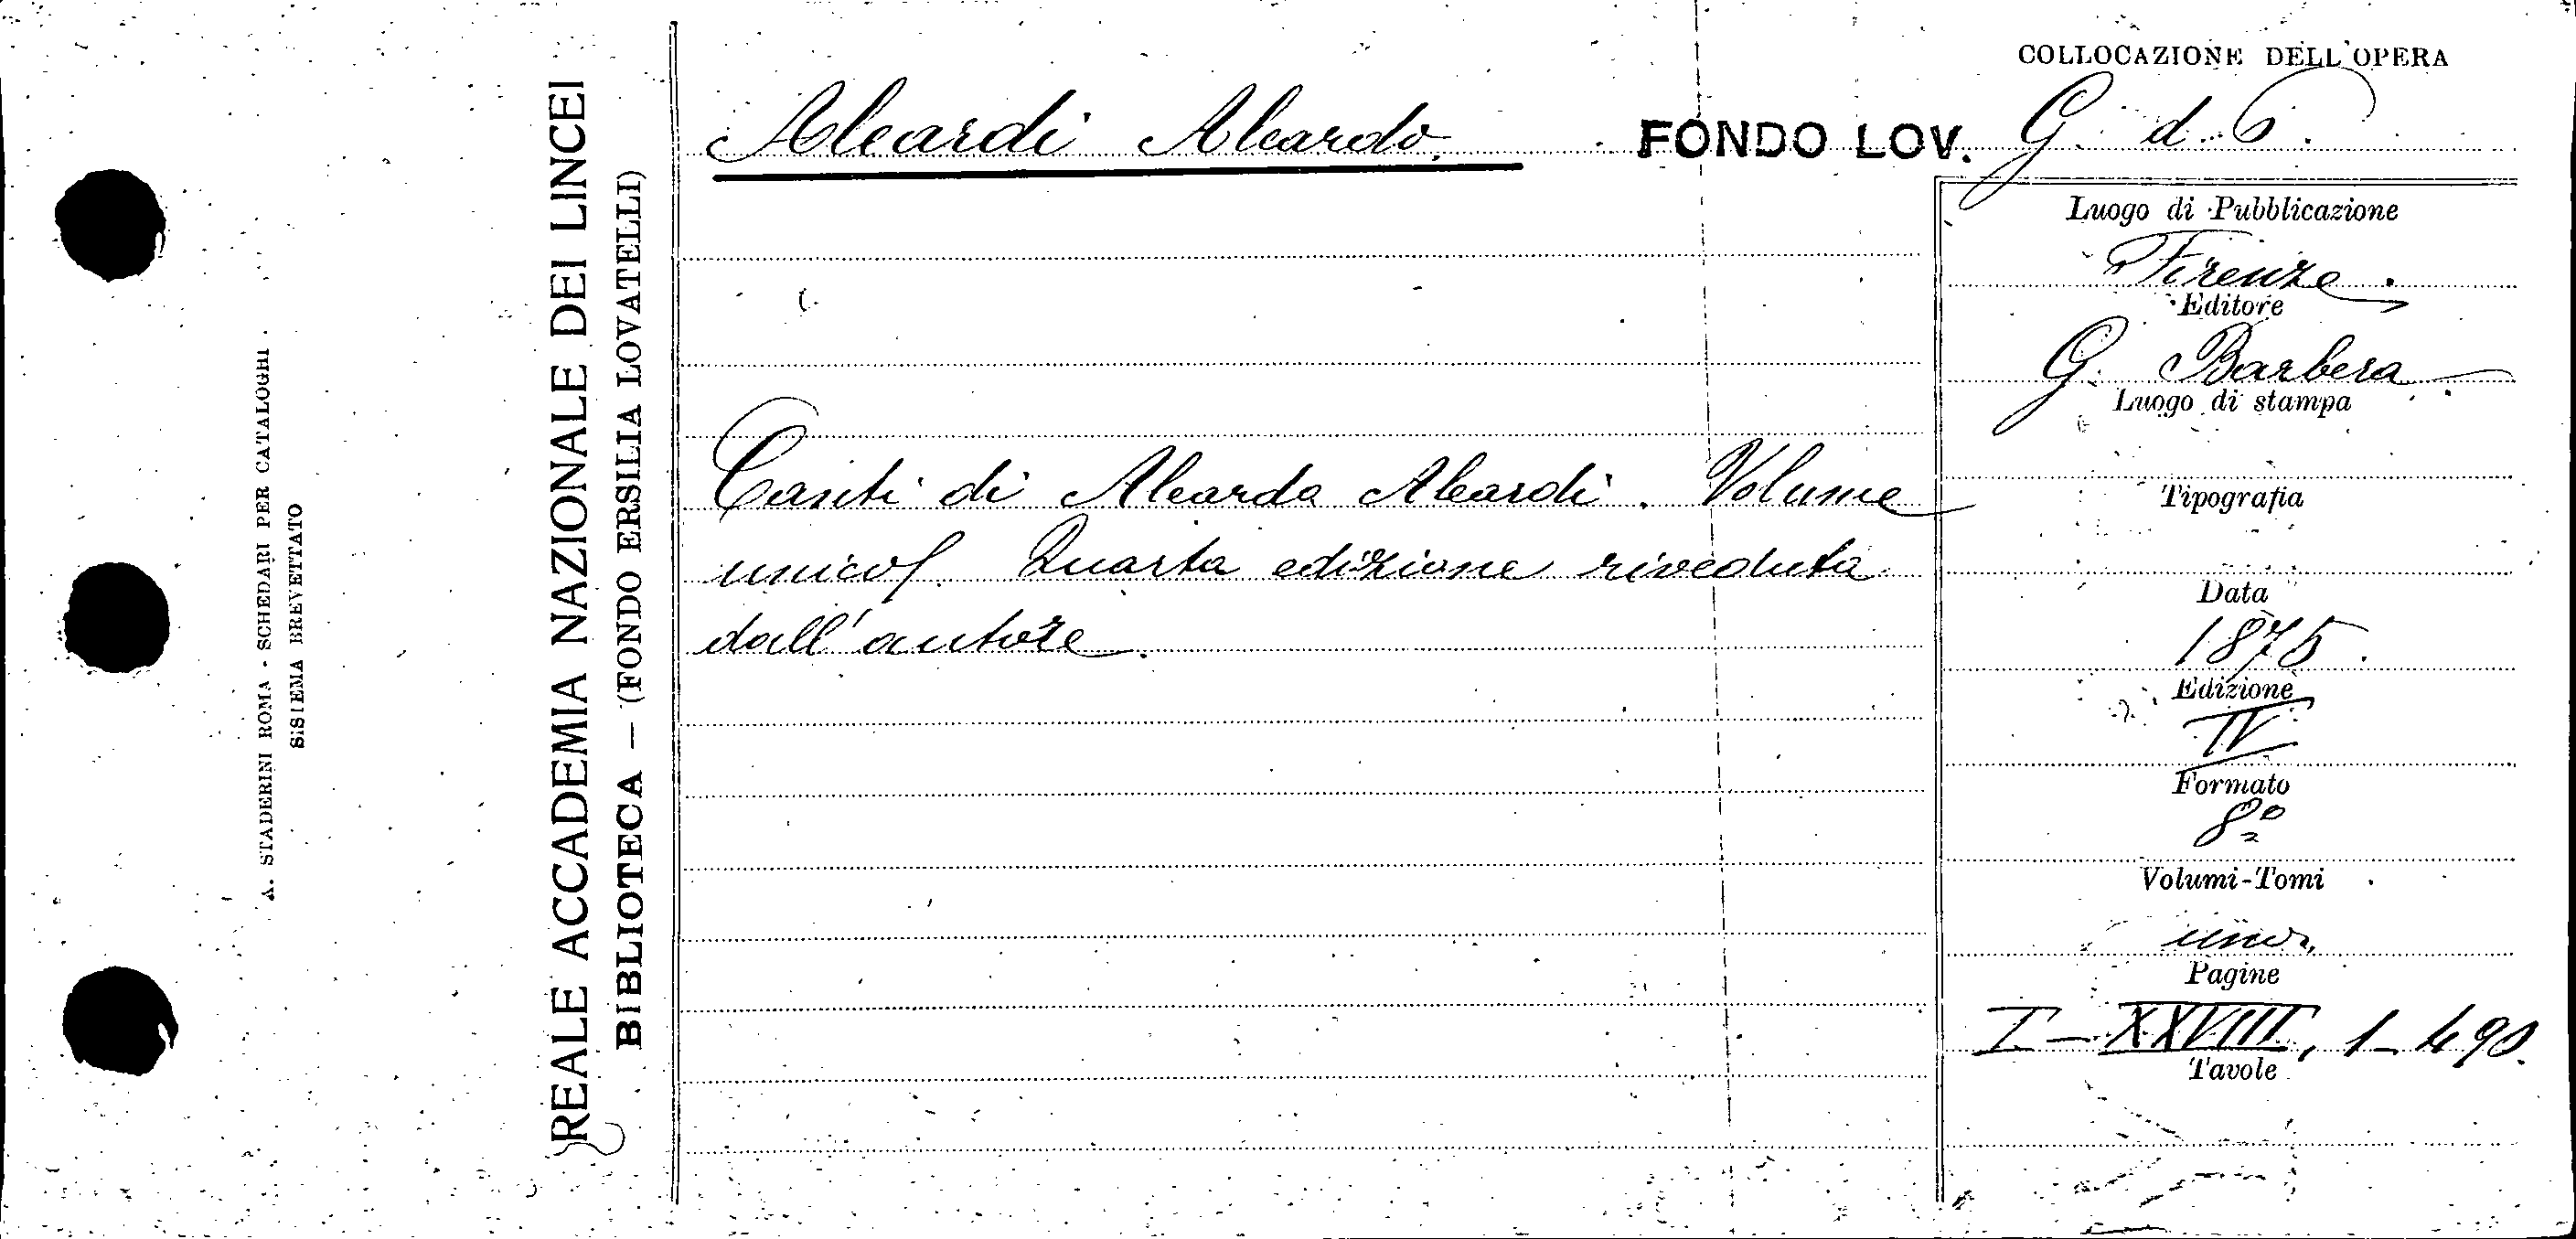 COLLOCAZIONE DELL'OPERA
Aleardi Aleardo.
FONDO LOV. G. d. 6.
Luogo di Pubblicazione
Firenze.
Editore
G. Barbera.
Luogo di stampa
Tipografia
Data
1875.
Edizione
IV
Formato
8º
Volumi-Tomi
uno,
Pagine
I-XXVIII, 1-490.
Tavole
Canti di Aleardo Aleardi. Volume
unico. Quarta edizione riveduta
dall'autore.
REALE ACCADEMIA NAZIONALE DEI LINCEI
BIBLIOTECA — (FONDO ERSILIA LOVATELLI)
A. STADERINI ROMA - SCHEDARI PER CATALOGHI
SISTEMA BREVETTATO